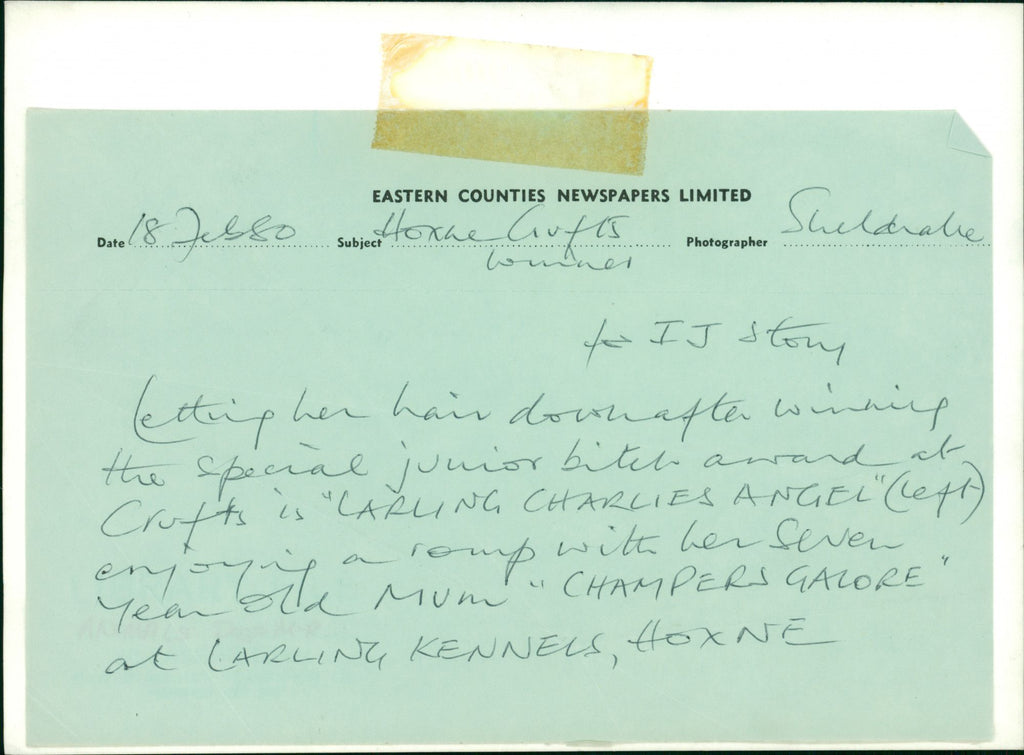 EASTERN COUNTIES NEWSPAPERS LIMITED
Date 18 Feb 80 Subject Hoxne Crufts Photographer Sheldrake
winner
to I J Story
Letting her hair down after winning
the special junior bitch award at
Crufts is "LARLING CHARLIES ANGEL" (left)
enjoying a romp with her seven
year old mum "CHAMPERS GALORE"
at LARLING KENNELS, HOXNE